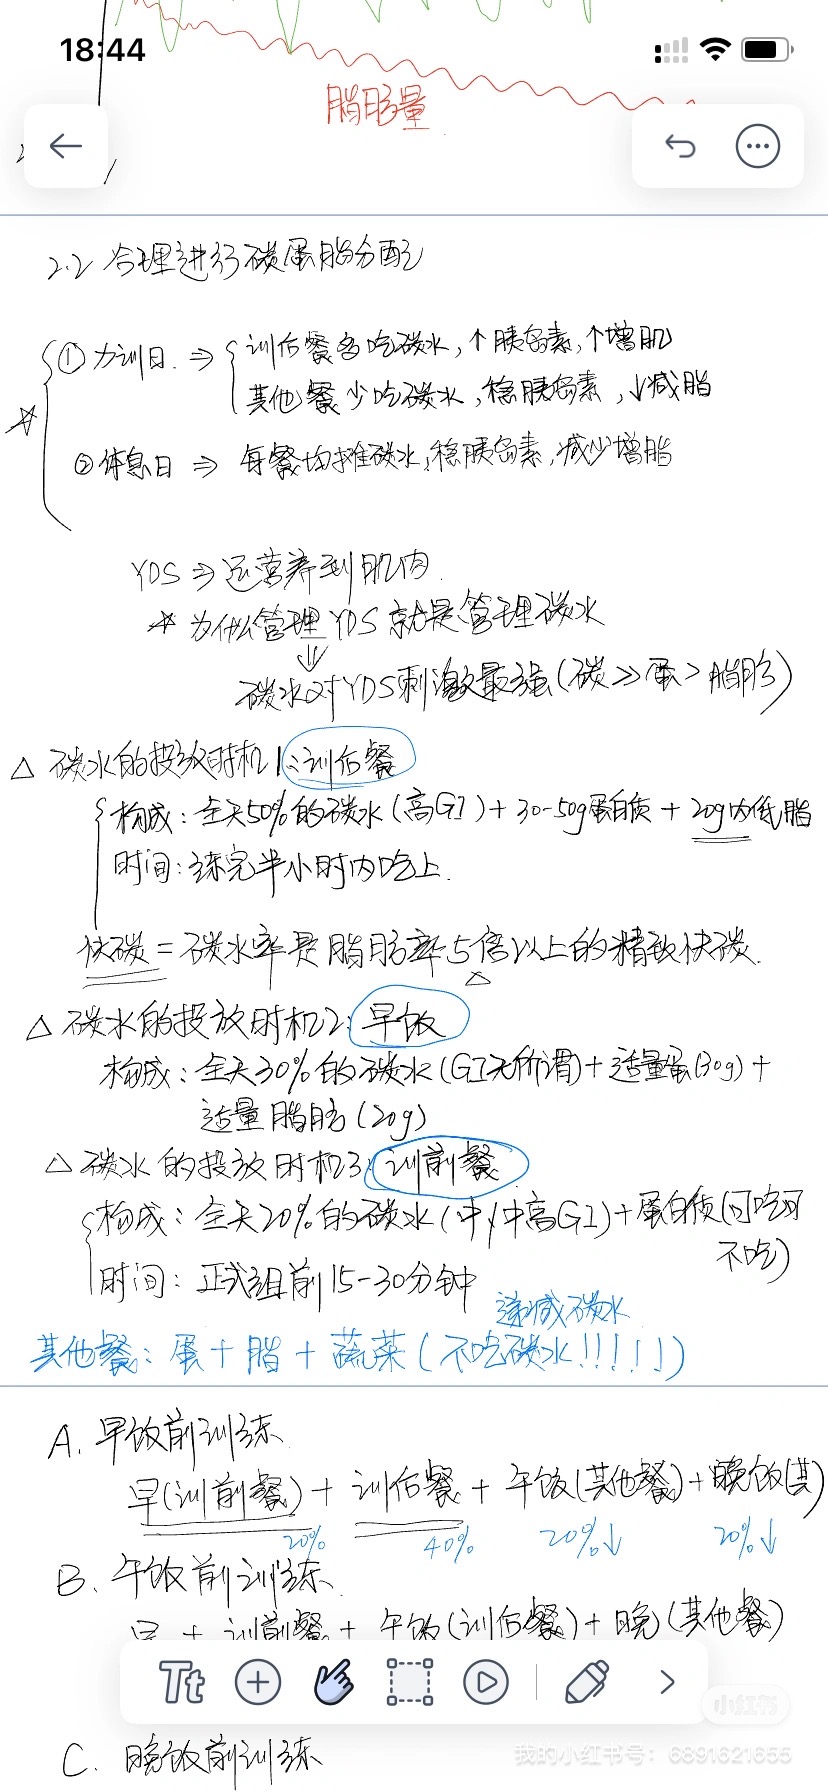 18:44
脂肪量
2.2 合理进行碳蛋脂分配
① 力训日 ⇒ 训后餐多吃碳水,↑胰岛素,↑增肌
其他餐少吃碳水,稳胰岛素,↓减脂
② 休息日 ⇒ 每餐均摊碳水,稳胰岛素,减少增脂
YDS ⇒ 运营养到肌肉
☆ 为什么管理YDS就是管理碳水
⇓
碳水对YDS刺激最强(碳≫蛋>脂肪)
△ 碳水的投放时机1:训后餐
构成:全天50%的碳水(高GI)+30-50g蛋白质+20g内低脂
时间:练完半小时内吃上.
快碳=碳水率是脂肪率5倍以上的精致快碳.
△ 碳水的投放时机2:早饭
构成:全天30%的碳水(GI无所谓)+适量蛋(30g)+
适量脂肪(20g)
△ 碳水的投放时机3:训前餐
构成:全天20%的碳水(中/中高GI)+蛋白质(可吃可
不吃)
时间:正式组前15-30分钟
递减碳水
其他餐:蛋+脂+蔬菜(不吃碳水!!!!!)
A. 早饭前训练
早(训前餐)+训后餐+午饭(其他餐)+晚饭(其)
20% 40% 20%↓ 20%↓
B. 午饭前训练
早+训前餐+午饭(训后餐)+晚(其他餐)
Tt
小红书
C. 晚饭前训练
我的小红书号:6891621655